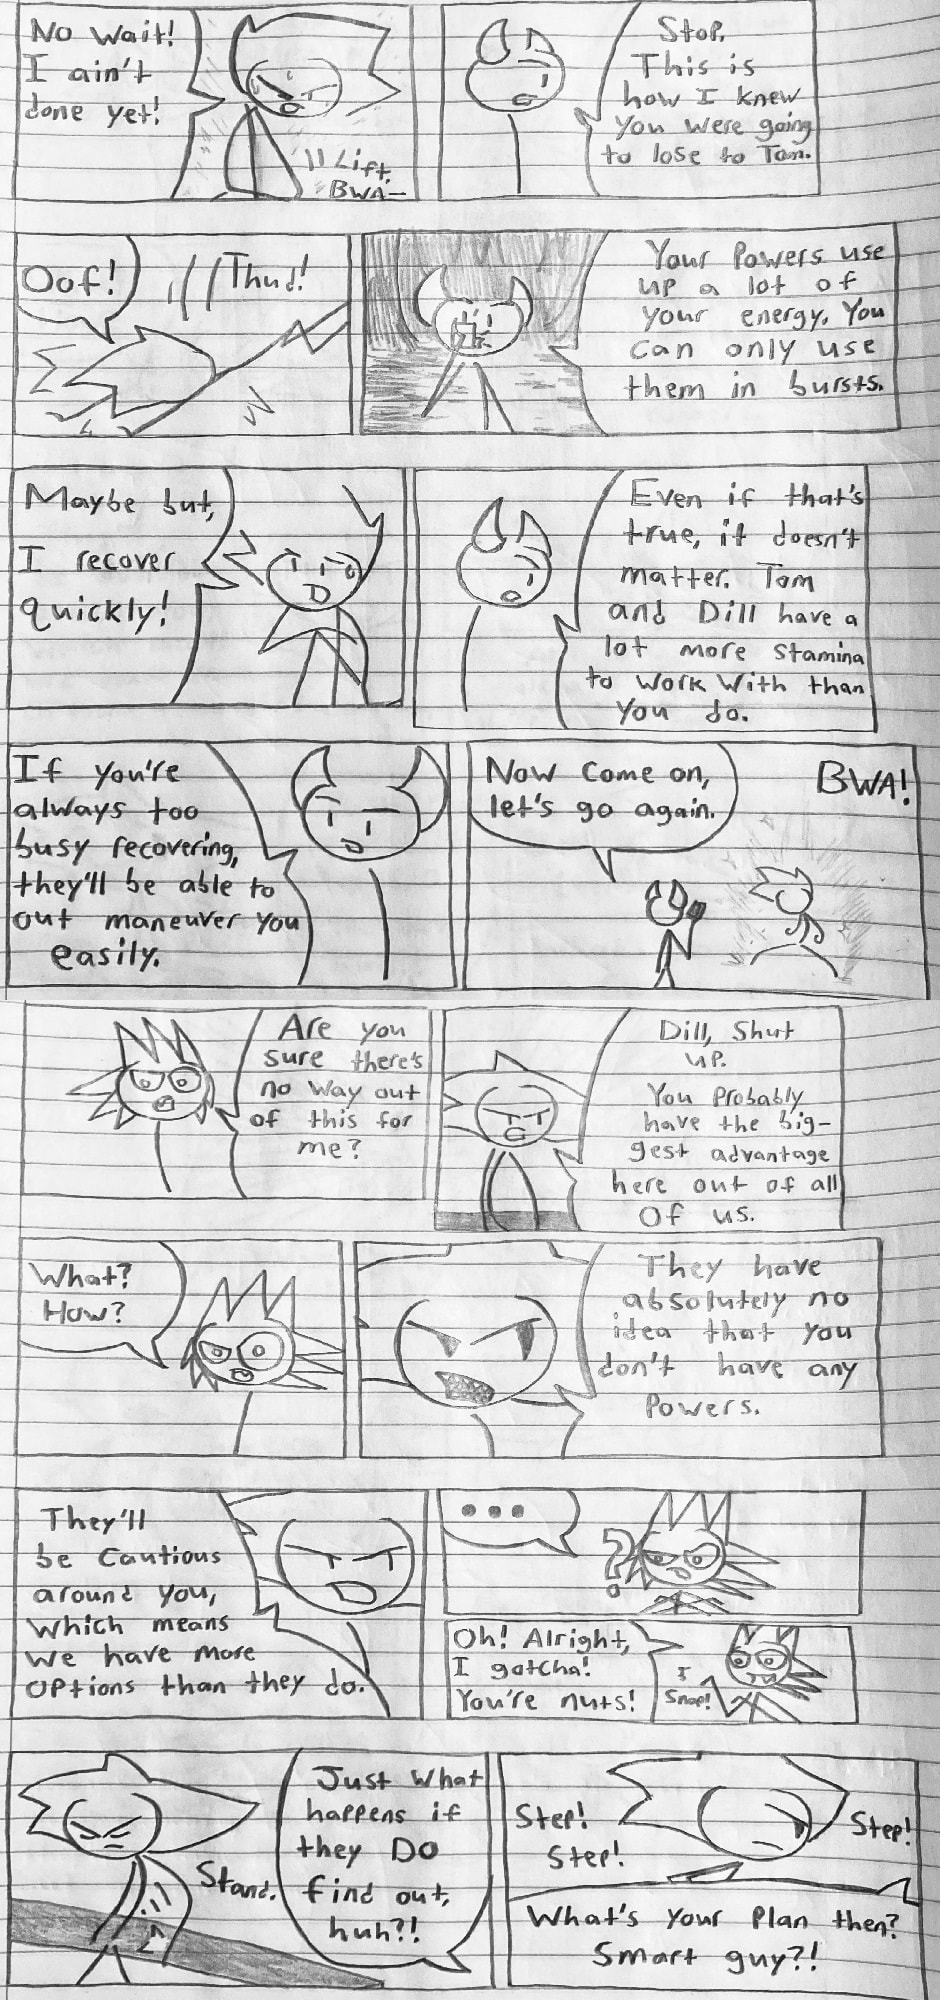 No Wait!
I ain't
done yet!
Lift.
BWA—
Stop.
This is
how I knew
you were going
to lose to Tom.
Oof!
Thud!
Your Powers use
up a lot of
your energy. You
can only use
them in bursts.
Maybe but,
I recover
quickly!
Even if that's
true, it doesn't
matter. Tom
and Dill have a
lot more stamina
to work with than
you do.
If you're
always too
busy recovering,
they'll be able to
out maneuver you
easily.
Now come on,
let's go again.
BWA!
Are you
sure there's
no way out
of this for
me?
Dill, Shut
up.
You Probably
have the big-
gest advantage
here out of all
of us.
What?
How?
They have
absolutely no
idea that you
don't have any
Powers.
They'll
be cautious
around you,
which means
we have more
options than they do.
...
?
Oh! Alright,
I gotcha!
You're nuts!
Snap!
Stand.
Just what
happens if
they DO
find out,
huh?!
Step!
Step!
Step!
What's your Plan then?
Smart guy?!